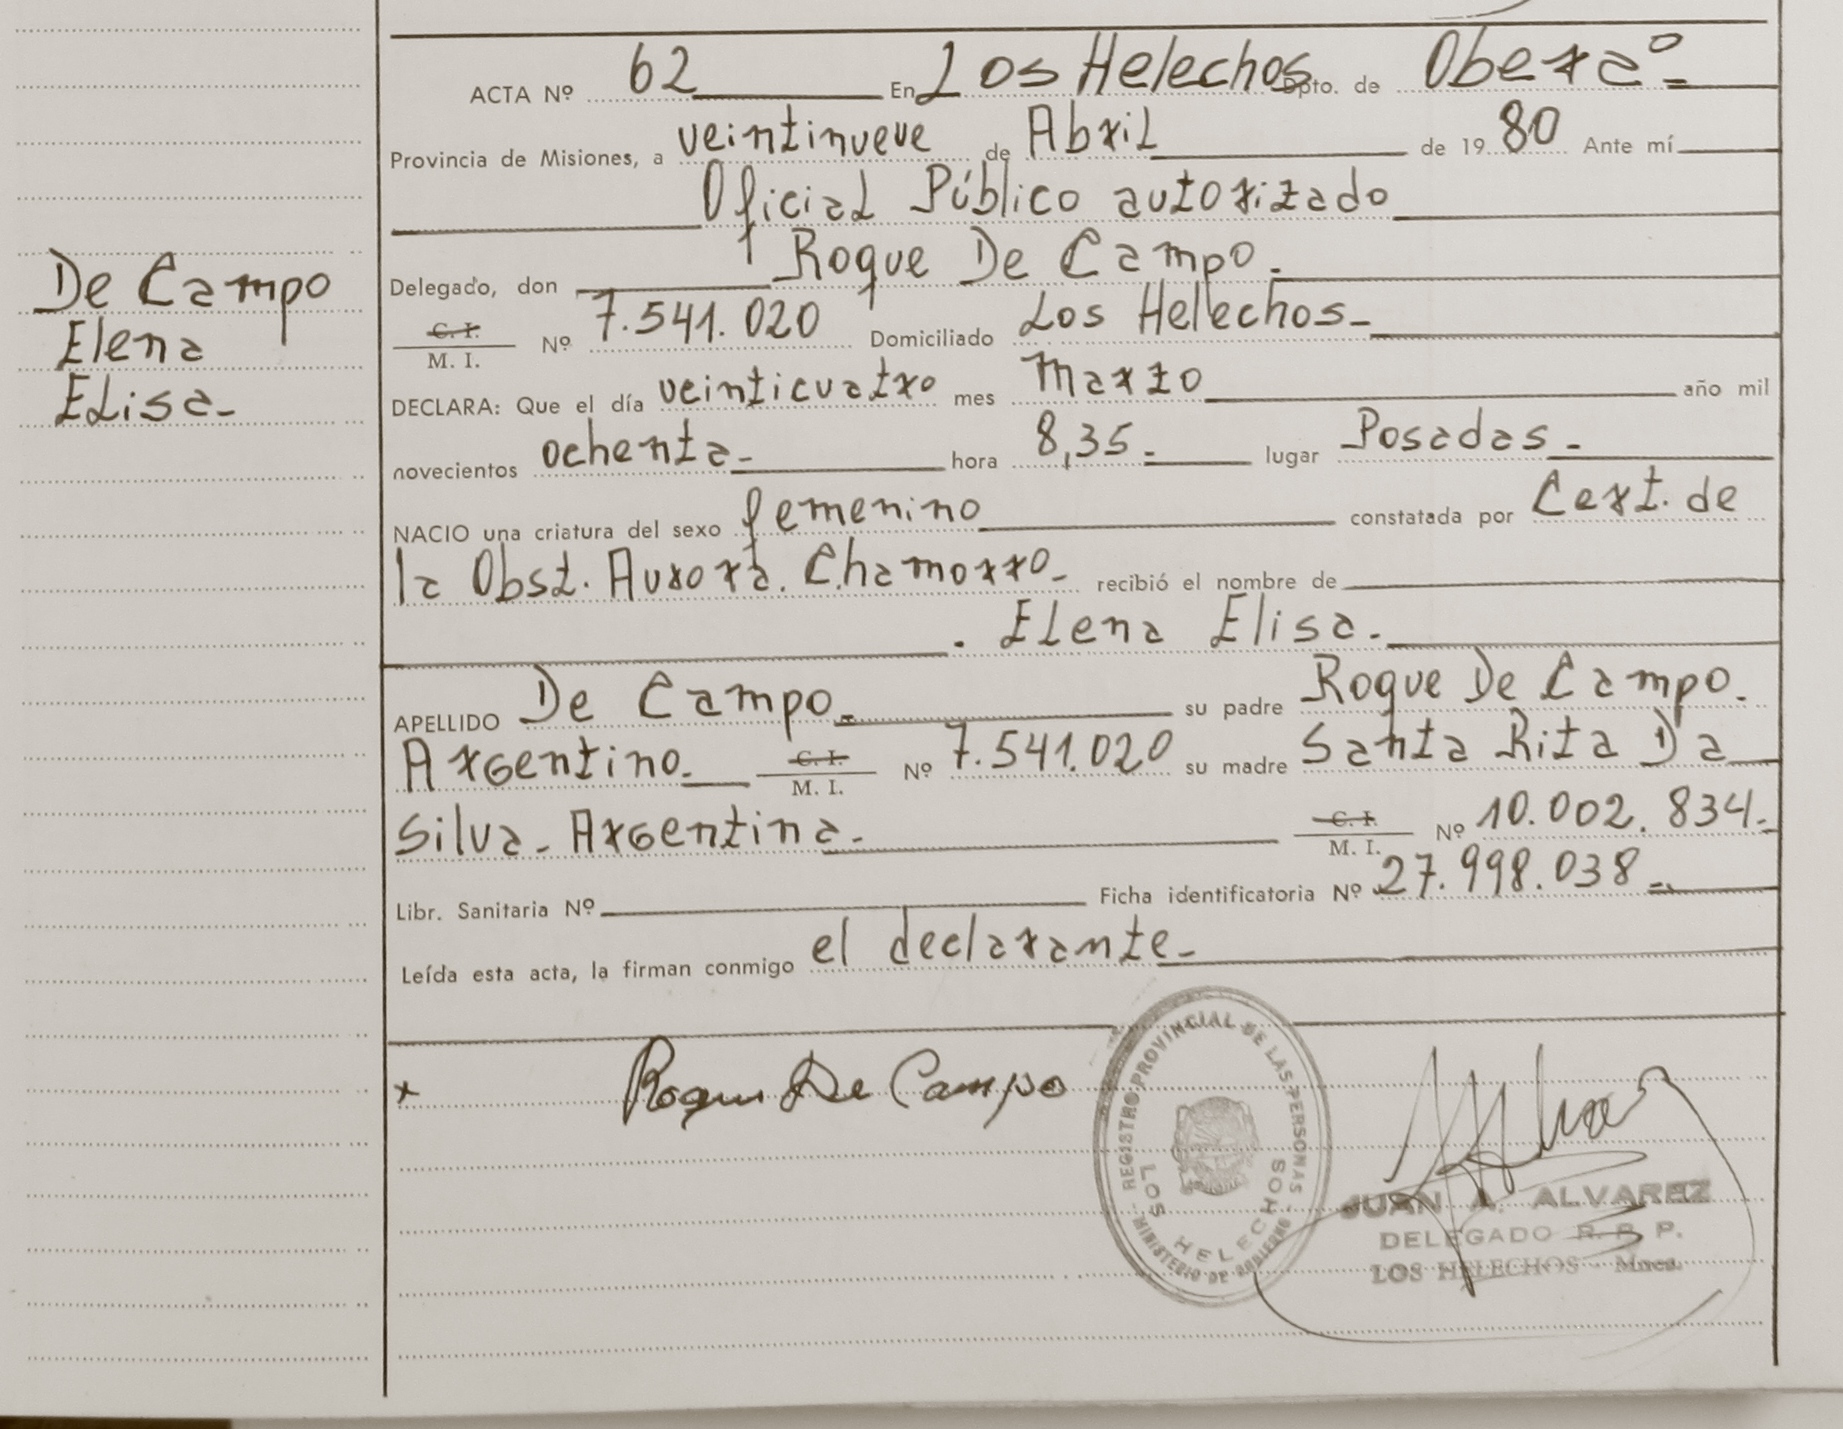 De Campo
Elena
Elisa-
ACTA Nº 62 En Los Helechos Dpto. de Oberá-
Provincia de Misiones, a veintinueve de Abril de 1980 Ante mí
Oficial Público autorizado
Delegado, don Roque De Campo.
C. I. / M. I. Nº 7.541.020 Domiciliado Los Helechos-
DECLARA: Que el día veinticuatro mes Marzo año mil
novecientos ochenta- hora 8,35- lugar Posadas-
NACIO una criatura del sexo femenino constatada por Cert. de
la Obst. Aurora Chamorro- recibió el nombre de
. Elena Elisa.
APELLIDO De Campo- su padre Roque De Campo.
Argentino- C. I. / M. I. Nº 7.541.020 su madre Santa Rita Da
Silva- Argentina- C. I. / M. I. Nº 10.002.834-
Libr. Sanitaria Nº Ficha identificatoria Nº 27.998.038-
Leída esta acta, la firman conmigo el declarante-
x Roque De Campo
REGISTRO PROVINCIAL DE LAS PERSONAS
LOS HELECHOS
MINISTERIO DE GOBIERNO
JUAN A. ALVAREZ
DELEGADO R. P. P.
LOS HELECHOS - Mnes.